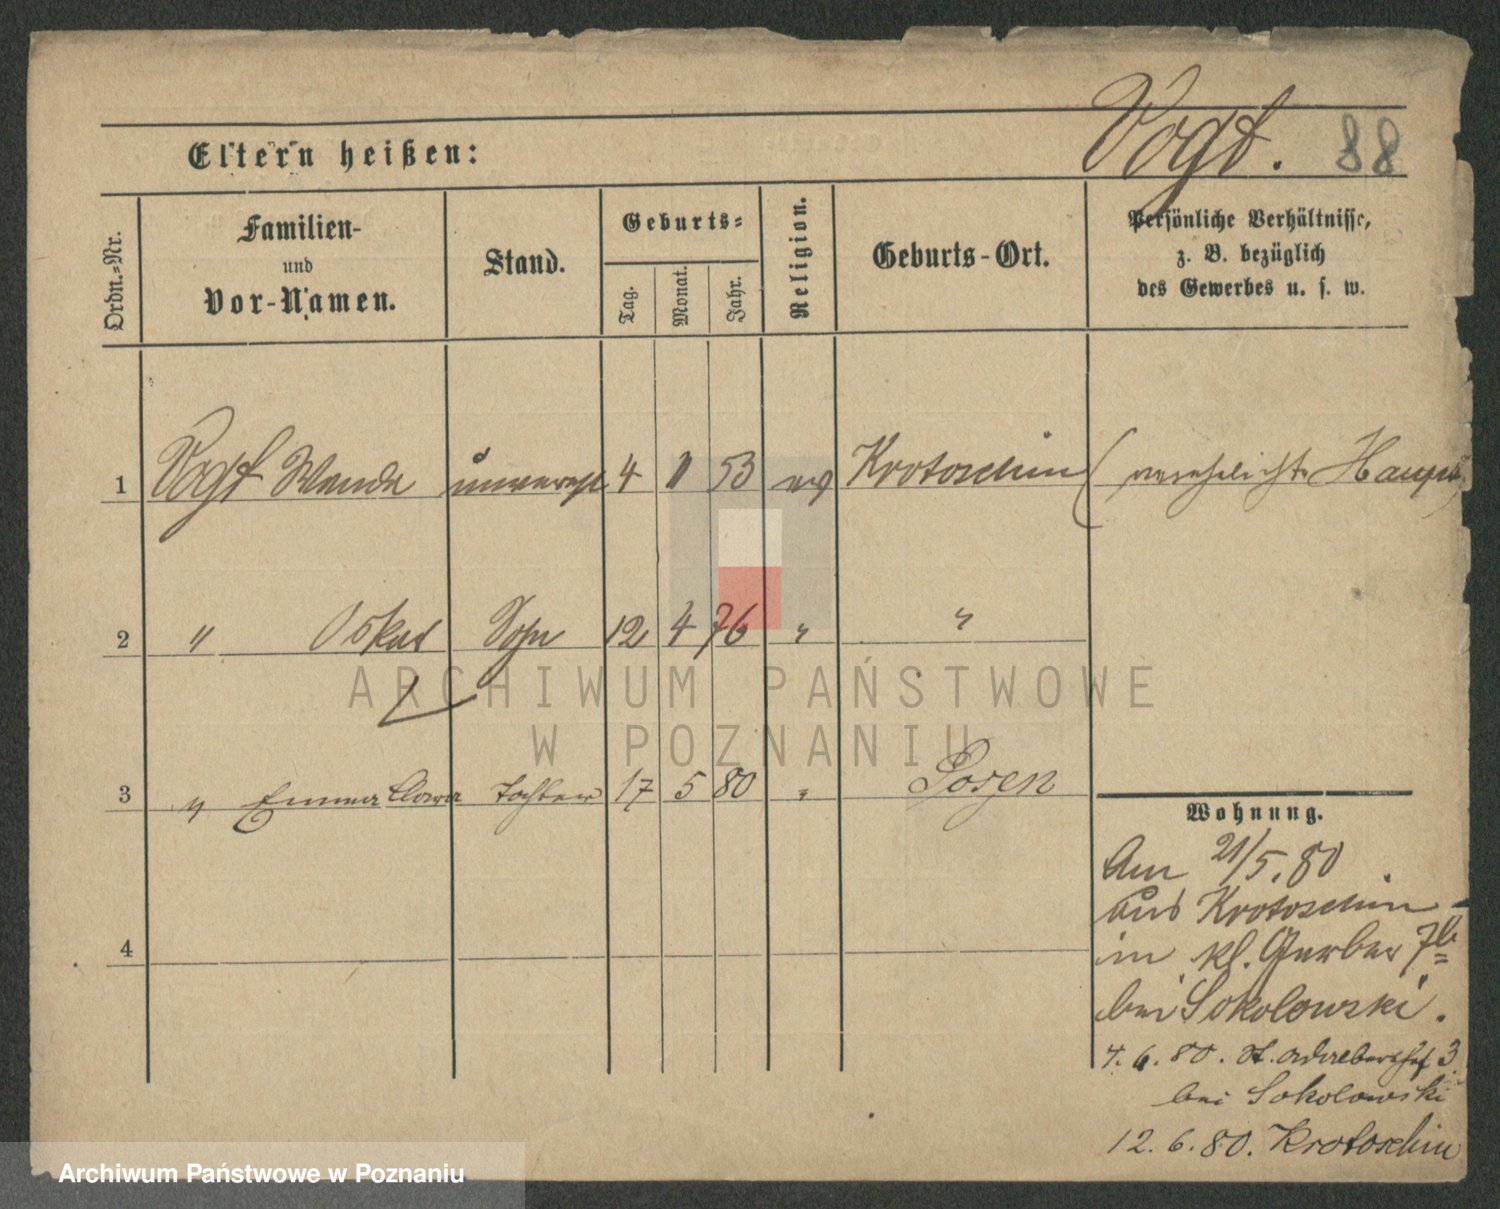 Vogt. 88
Eltern heißen:
Ordn.-Nr.
Familien-
und
Vor-Namen.
Stand.
Geburts-
Tag.
Monat.
Jahr.
Religion.
Geburts-Ort.
Persönliche Verhältnisse,
z. B. bezüglich
des Gewerbes u. s. w.
1 Vogt Wanda unvereh 4 1 53 ev Krotoschin (verehelichte Haupt)
2 " Oskar Sohn 12 4 76 " "
3 " Emma Clara Tochter 17 5 80 " Posen
4
Wohnung.
Am 21/5.80
aus Krotoschin
in kl. Gerber 7b
bei Sokolowski.
4.6.80. St. Adalbert 3
bei Sokolowski
12.6.80. Krotoschin
ARCHIWUM PAŃSTWOWE
W POZNANIU
Archiwum Państwowe w Poznaniu